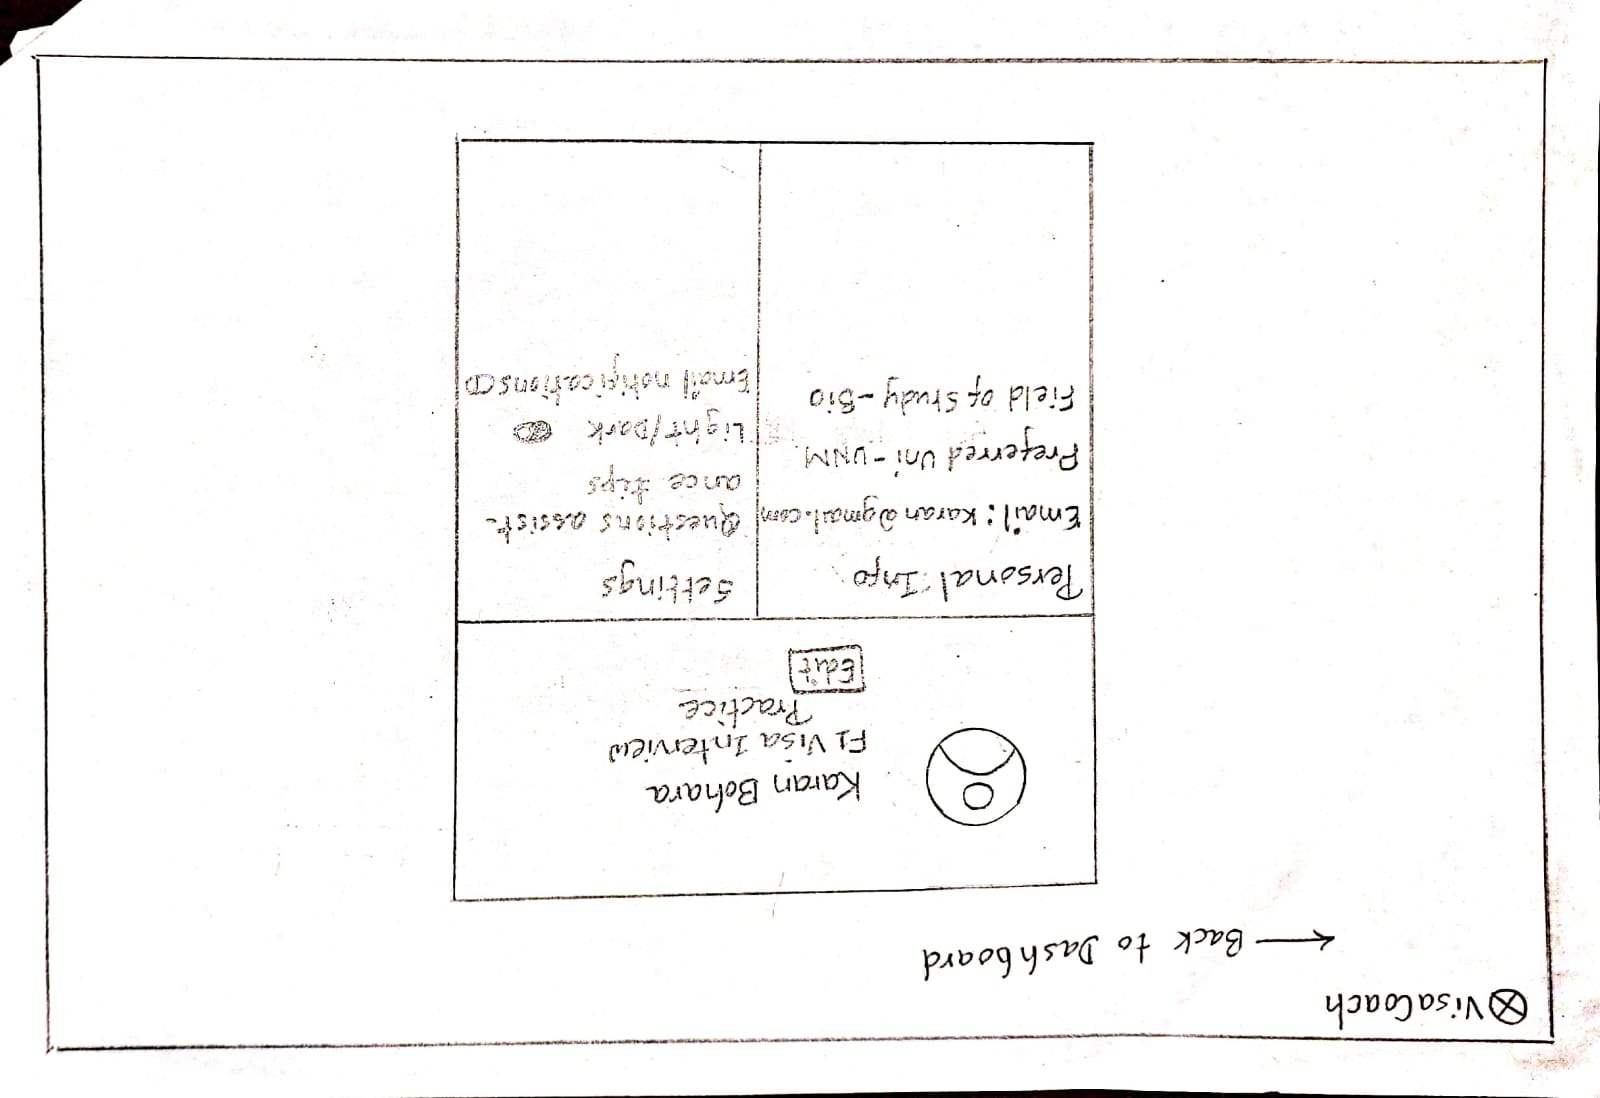 VisaCoach
← Back to Dashboard
Karan Bohara
F1 Visa Interview
Practice
Edit
Personal Info
Email: Karan@gmail.com
Preferred Uni - UNM
Field of Study - Bio
Settings
Questions assist-
ance tips
Light/Dark
Email notifications